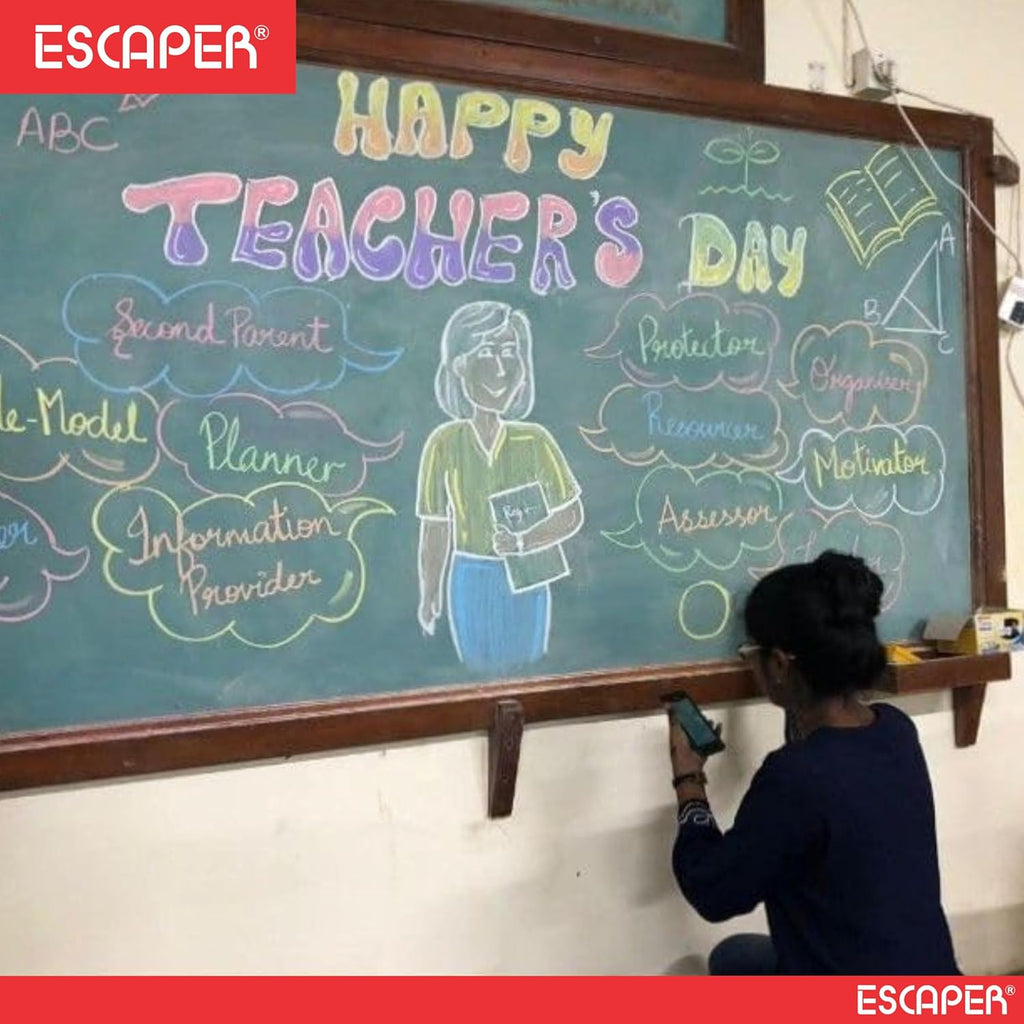 ESCAPER®
ABC
HAPPY
TEACHER'S DAY
A
B
C
Second Parent
Protector
Organiser
le-Model
Planner
Resourcer
Motivator
Information
Provider
Assessor
er
ESCAPER®